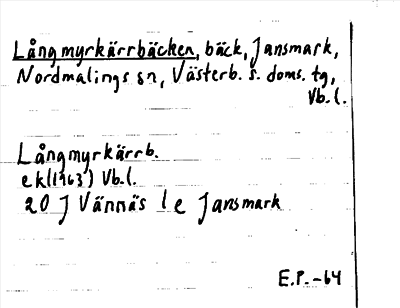 Långmyrkärrbäcken, bäck, Jansmark,
Nordmalings sn, Västerb. s. doms. tg,
Vb.l.
Långmyrkärrb.
ek(1963) Vb.l.
20 J Vännäs l e Jansmark
E.P.-64